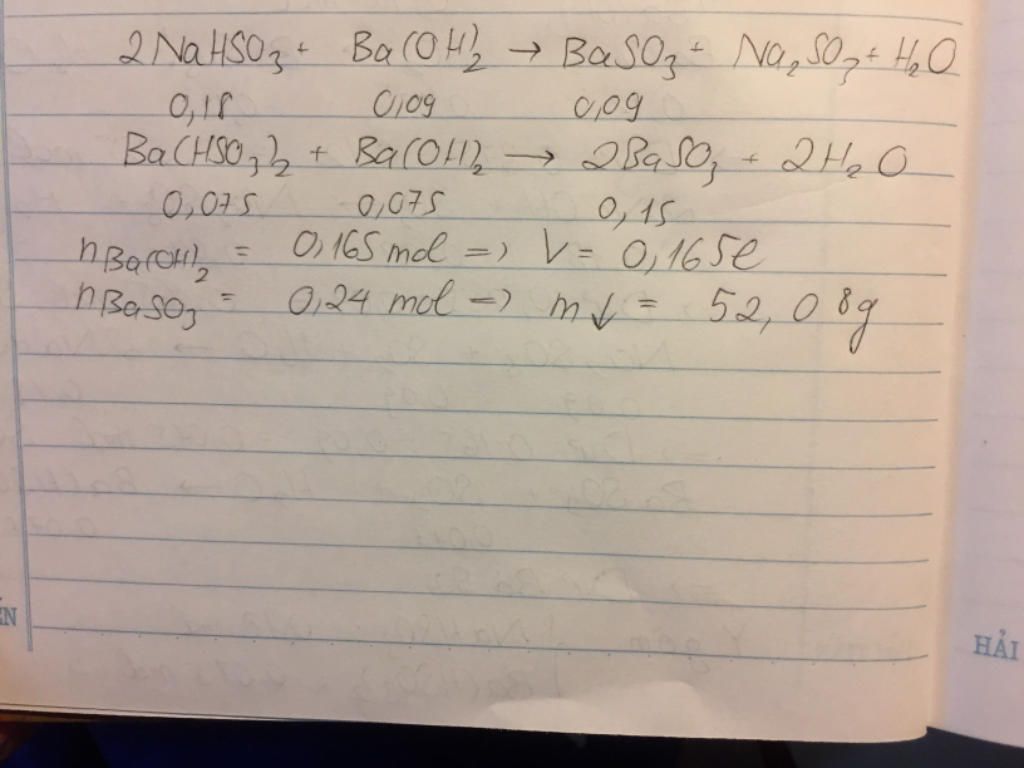 2NaHSO₃ + Ba(OH)₂ → BaSO₃ + Na₂SO₃ + H₂O
0,18 0,09 0,09
Ba(HSO₃)₂ + Ba(OH)₂ → 2BaSO₃ + 2H₂O
0,075 0,075 0,15
nBa(OH)₂ = 0,165 mol => V = 0,165l
nBaSO₃ = 0,24 mol => m↓ = 52,08g
HẢI